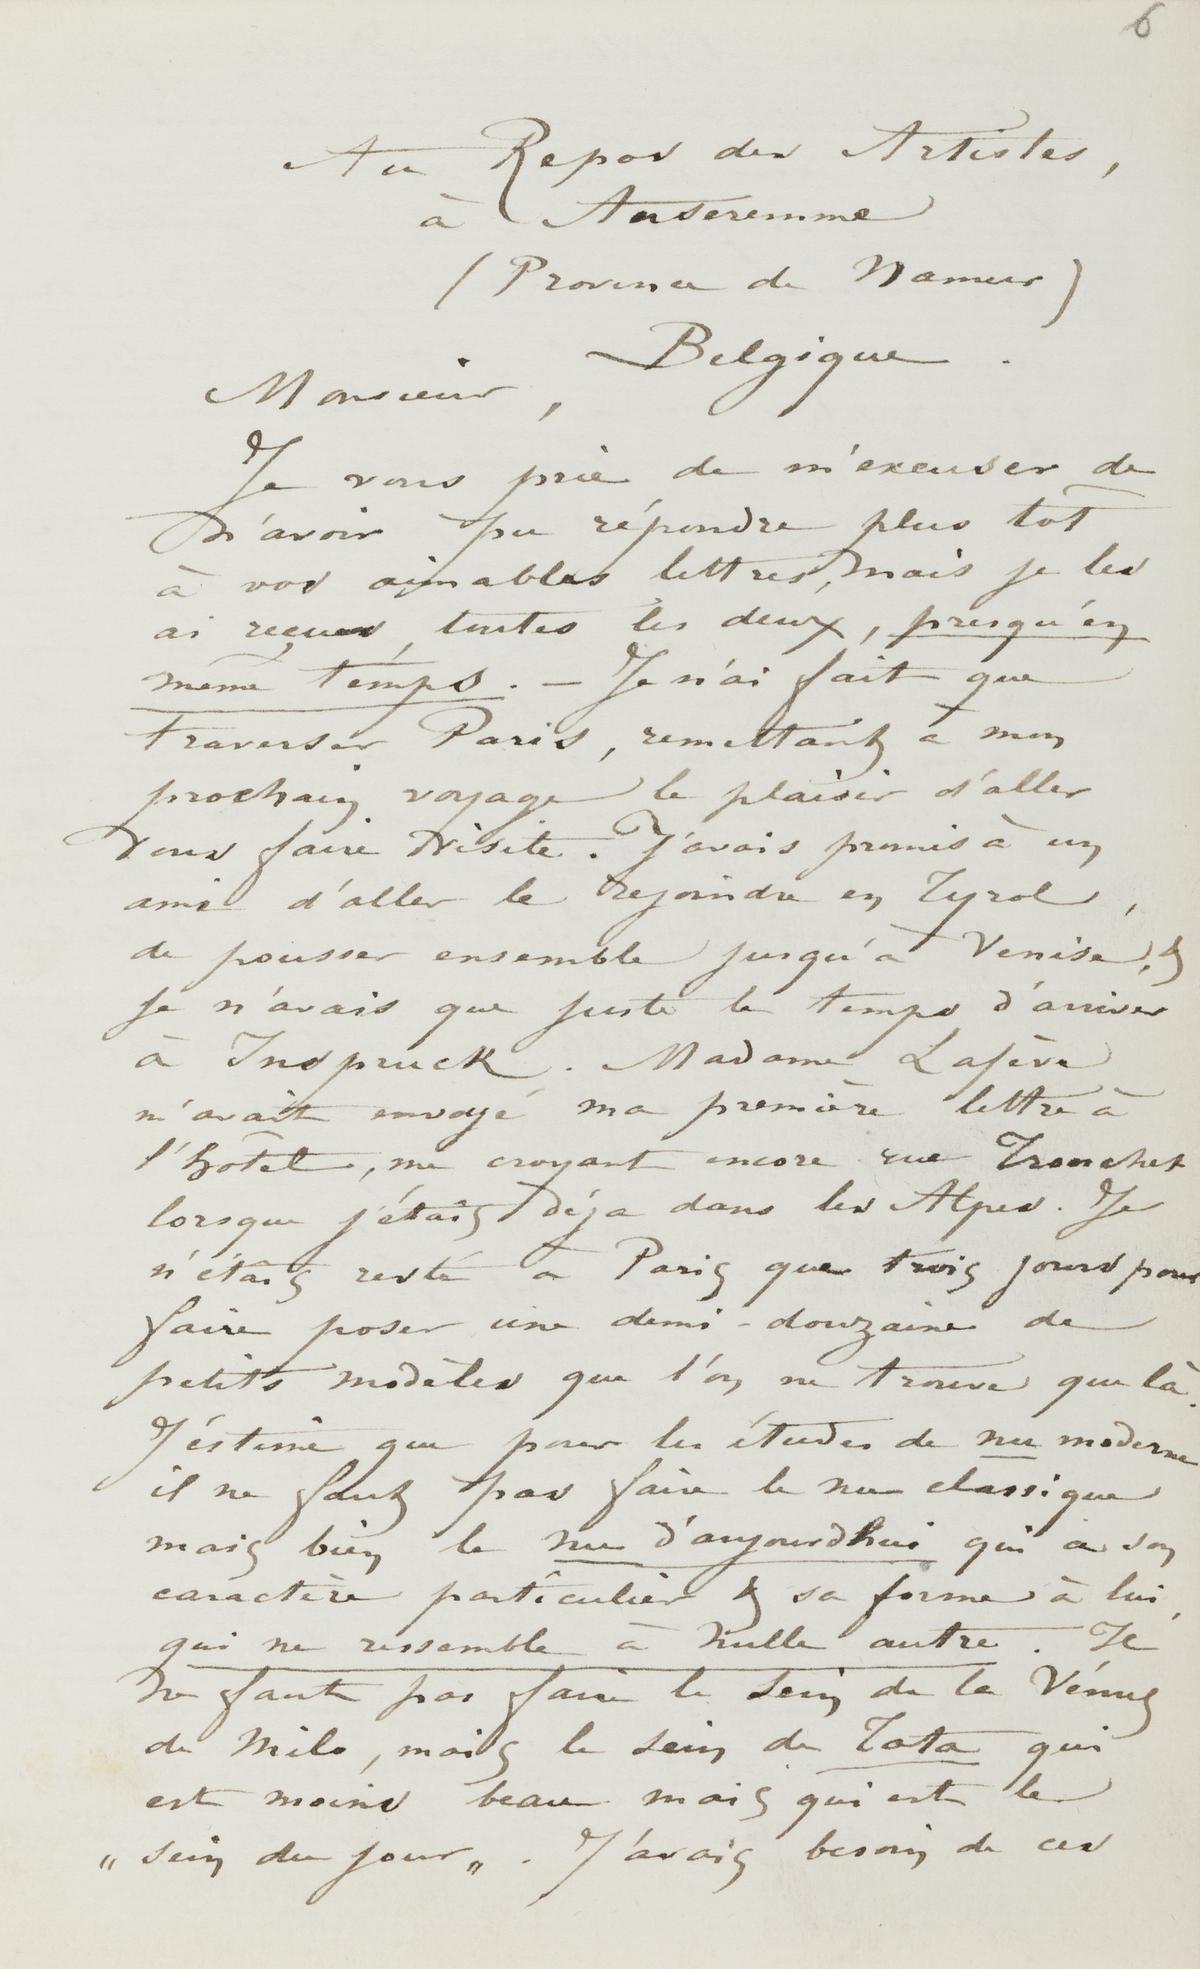 6
Au Repos des Artistes,
à Anseremme
(Province de Namur)
Belgique.
Monsieur,
Je vous prie de m'excuser de
n'avoir pu répondre plus tôt
à vos aimables lettres, mais je les
ai reçues, toutes les deux, presqu'en
même temps. — Je n'ai fait que
traverser Paris, remettant à mon
prochain voyage le plaisir d'aller
vous faire visite. J'avais promis à un
ami d'aller le rejoindre en Tyrol,
de pousser ensemble jusqu'à Venise, &
je n'avais que juste le temps d'arriver
à Inspruck. Madame
m'avait envoyé ma première lettre à
l'hôtel, me croyant encore rue Tronchet
lorsque j'étais déja dans les Alpes. Je
n'étais resté à Paris que trois jours pour
faire poser une demi-douzaine de
petits modèles que l'on ne trouve que là.
J'éstime que pour les études de nu moderne
il ne faut pas faire le nu classique
mais bien le nu d'aujourdhui qui a son
caractère particulier & sa forme à lui,
qui ne ressemble à nulle autre. Il
ne faut pas faire le sein de la Vénus
de Milo, mais le sein de Tata qui
est moins beau mais qui est le
„sein du jour„. J'avais besoin de ces